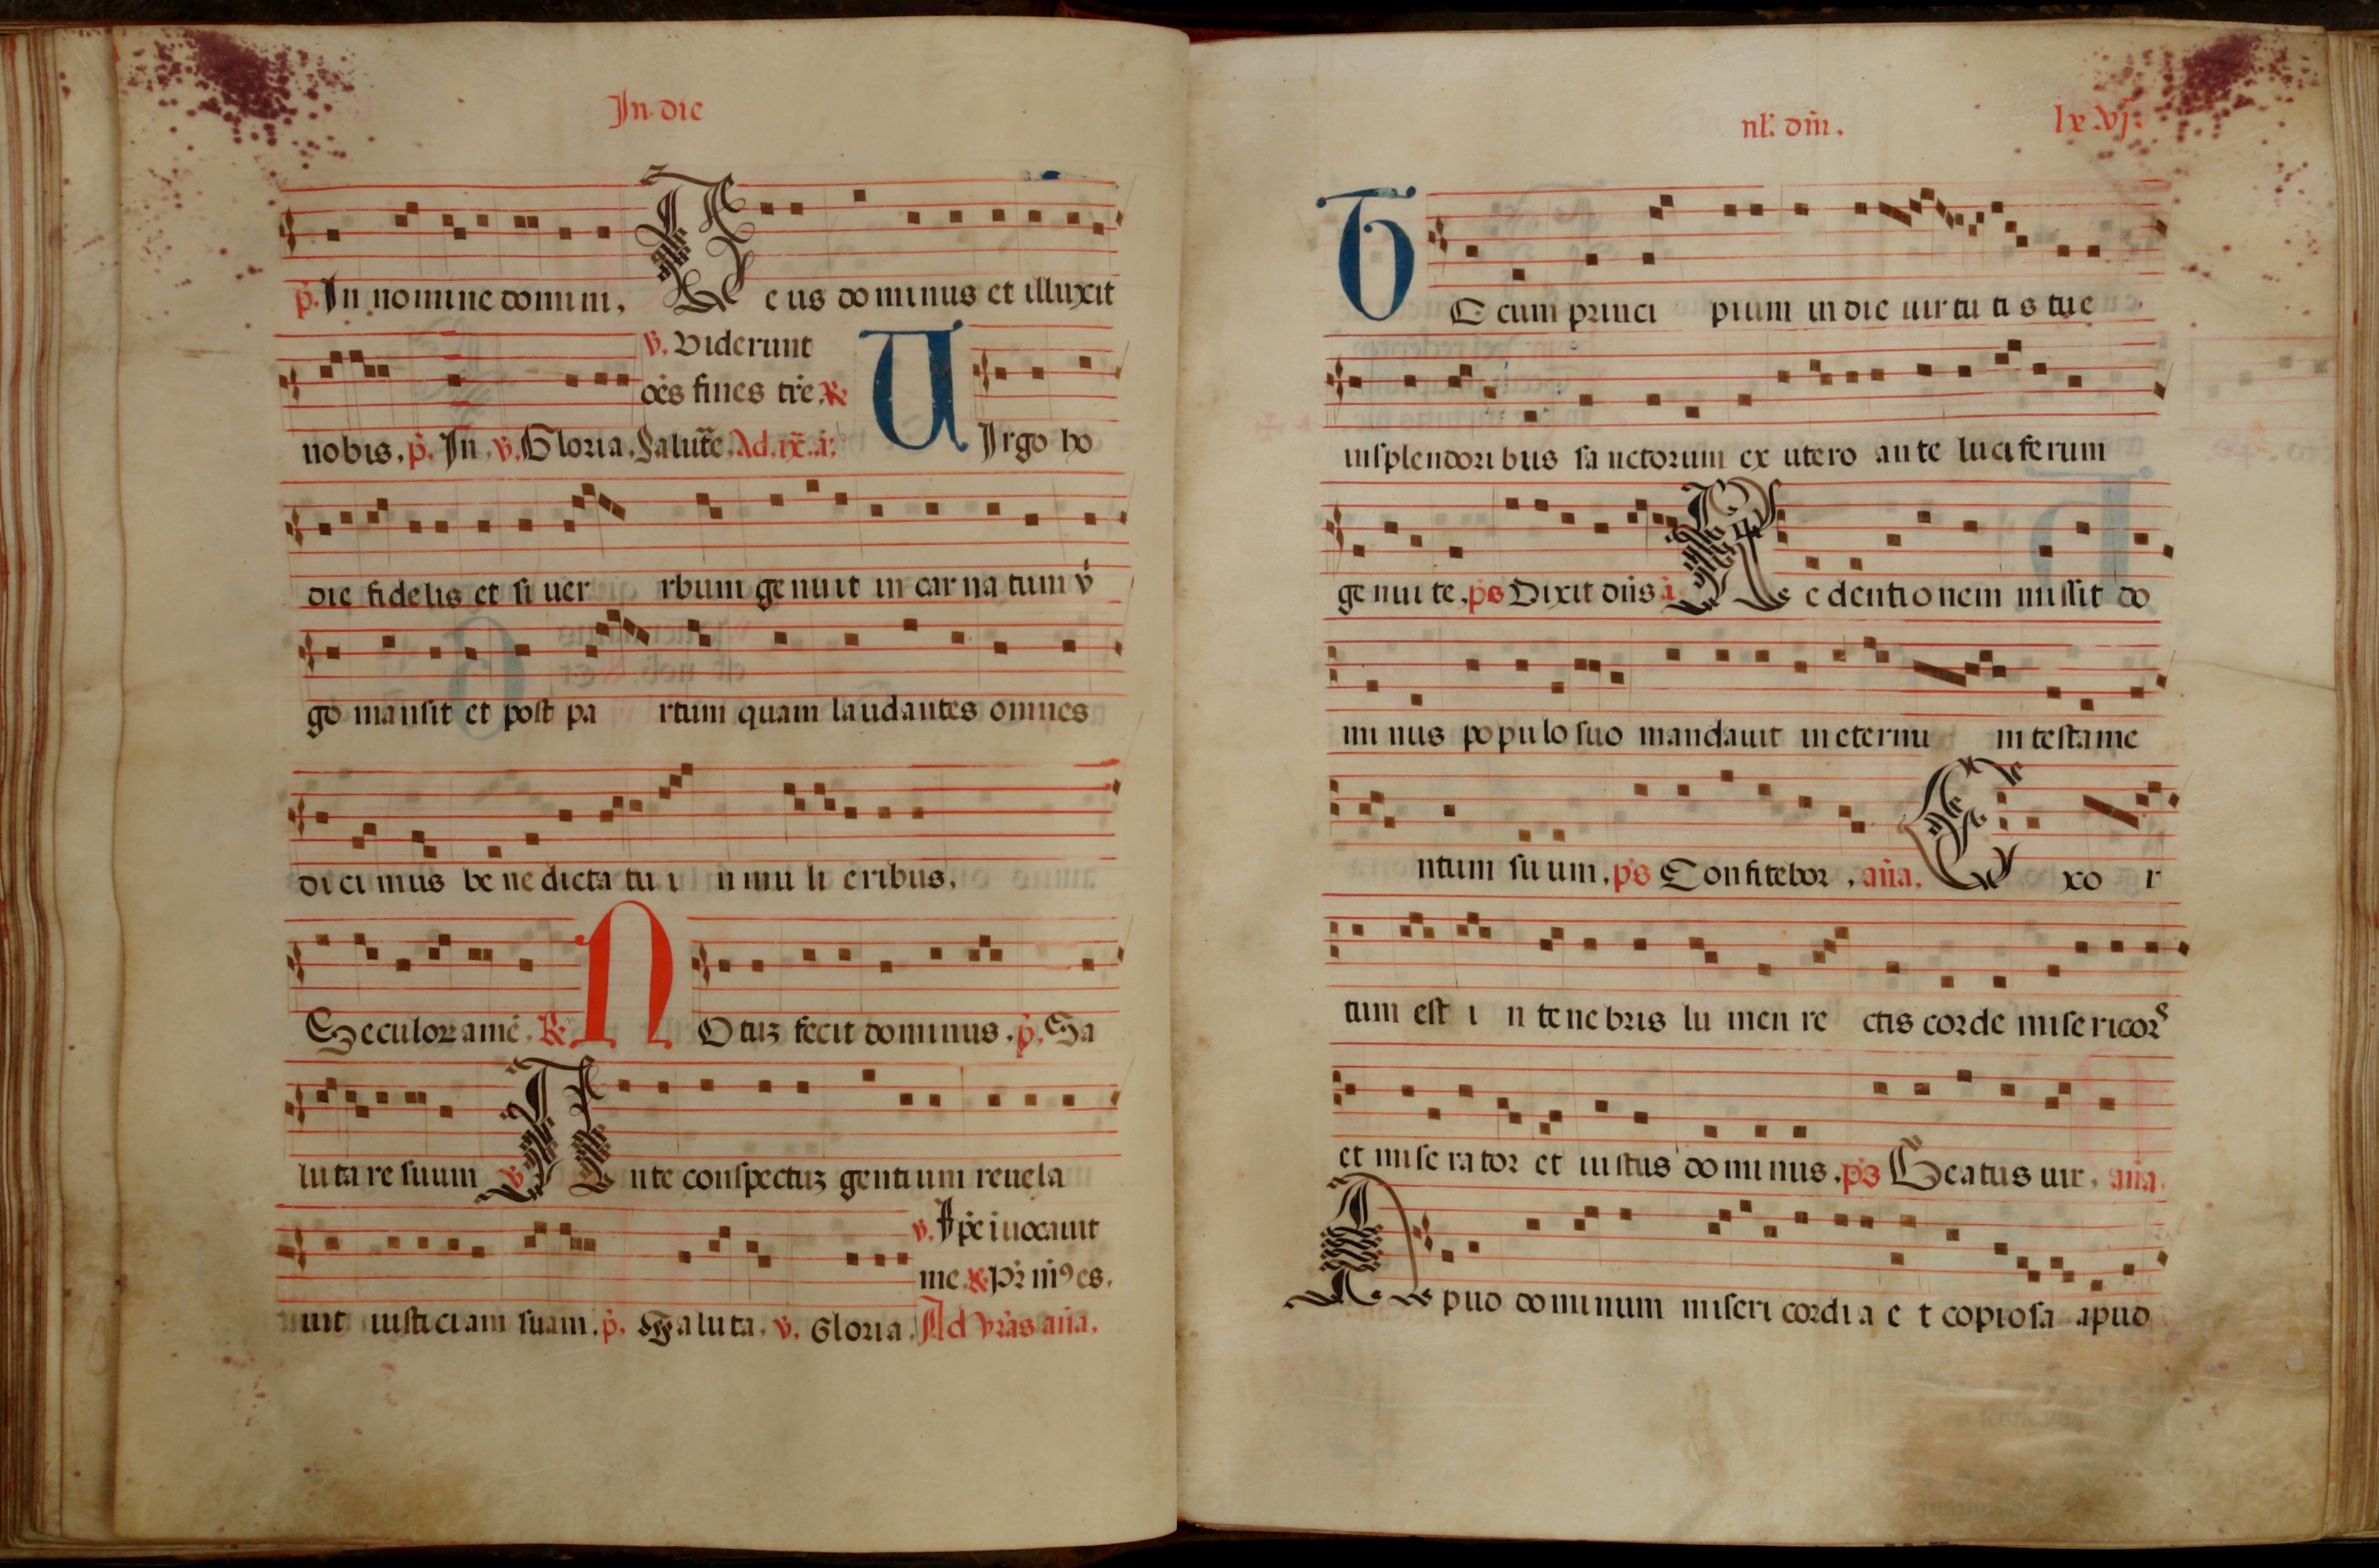 In die
p. In nomine domini, D eus dominus et illuxit
v. Viderunt
oēs fines tr̄e. R
nobis. p. In. v. Gloria. Salut̄e. Ad. ix. a:
U Irgo ho
die fidelis et si uer rbum genuit in carnatum v
go mansit et post pa rtum quam laudantes omnes
dicimus benedicta tu i n mu li eribus.
Seculor amē. R. N Otuz fecit dominus. p. Sa
lutare suum v A nte conspectuz gentium reuela
v. Ip̄e iuocauit
me. R. Pr̄ m̄9 es.
uit iusticiam suam. p. Saluta. v. Gloria. Ad vr̄as an̄a.
nl̄. dn̄i. lx.vj.
T E cum princi pium in die uirtutis tue
insplendoribus sanctorum ex utero ante luciferum
genui te. ps Dixit dn̄s a R edentionem missit do
minus populo suo mandauit ineternu m testame
ntum suum. ps Confitebor. an̄a. E xo r
tum est i n tenebris lumen re ctis corde misericors
et miserator et iustus dominus. ps Beatus uir. an̄a.
A puo dominum misericordia e t copiosa apuo